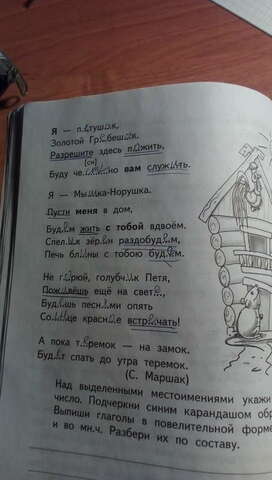 Я — петушок,
Золотой Гребешок,
Разрешите здесь пожить,
(сн)
Буду честно вам служить.
Я — Мышка-Норушка.
Пусти меня в дом,
Будем жить с тобой вдвоём.
Спелых зёрен раздобудем,
Печь блины с тобою будем.
Не горюй, голубчик Петя,
Поживёшь ещё на свете,
Будешь песнями опять
Солнце красное встречать!
А пока теремок — на замок.
Будет спать до утра теремок.
(С. Маршак)
Над выделенными местоимениями укажи
число. Подчеркни синим карандашом обр
Выпиши глаголы в повелительной форме
и во мн.ч. Разбери их по составу.